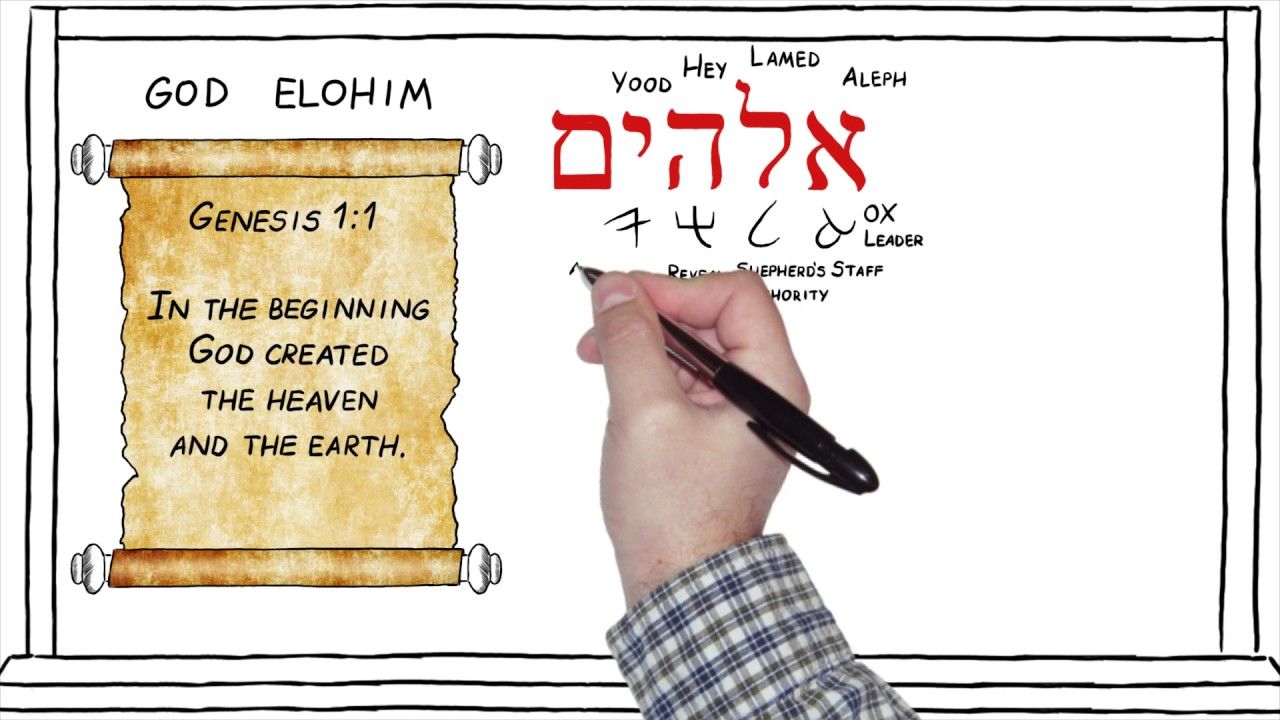 GOD ELOHIM
GENESIS 1:1
IN THE BEGINNING
GOD CREATED
THE HEAVEN
AND THE EARTH.
YOOD HEY LAMED ALEPH
אלהים
OX
LEADER
SHEPHERD'S STAFF